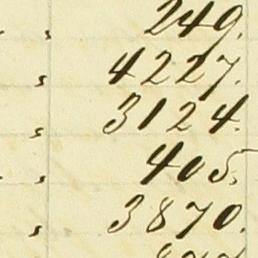 249.
4227.
3124.
405.
3870.